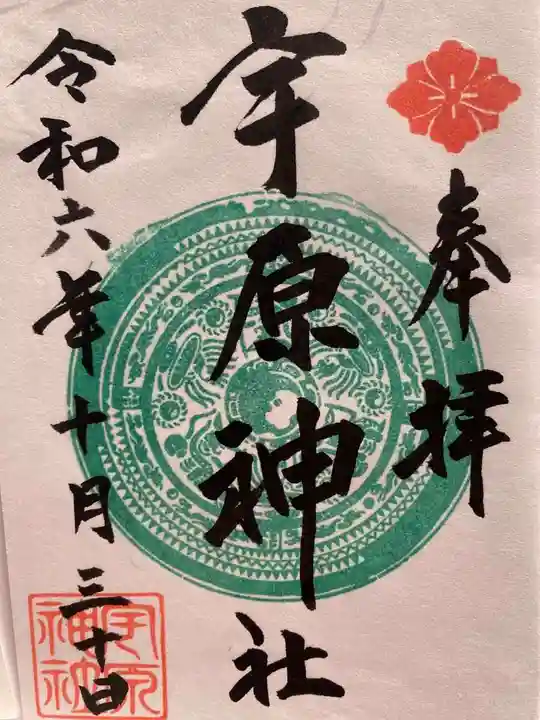 奉拝
宇原神社
令和六年十月三十日
宇原
神社